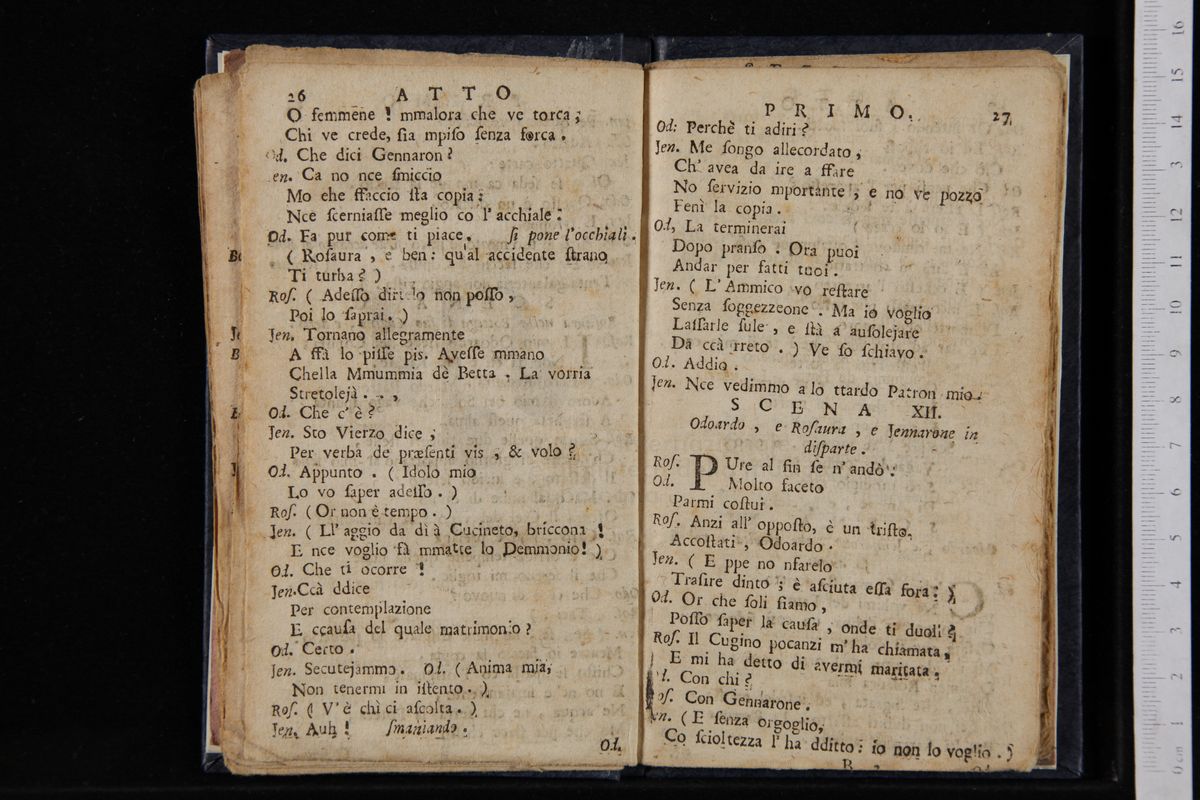 26 ATTO
O femmene ! mmalora che ve torca ;
Chi ve crede, ſia mpiſo ſenza forca .
Od. Che dici Gennaron ?
Jen. Ca no nce ſmiccio
Mo che ffaccio ſta copia :
Nce ſcerniaſſe meglio co l' acchiale :
Od. Fa pur come ti piace. ſi pone l'occhiali.
( Roſaura , e ben : qu'al accidente ſtrano
Ti turba ? )
Roſ. ( Adeſſo dirtelo non poſſo ,
Poi lo ſaprai. )
Jen. Tornano allegramente
A ffà lo piſſe pis. Aveſſe mmano
Chella Mmummia dè Betta . La vorria
Stretolejà . . ,
Od. Che c' è ?
Jen. Sto Vierzo dice ,
Per verba de præſenti vis , & volo ?
Od. Appunto . ( Idolo mio
Lo vo ſaper adeſſo . )
Roſ. ( Or non è tempo . )
Jen. ( Ll' aggio da di à Cucineto, briccona !
E nce voglio fà mmatte lo Demmonio ! )
Od. Che ti ocorre !
Jen. Ccà ddice
Per contemplazione
E ccauſa del quale matrimonio ?
Od. Certo .
Jen. Secutejammo. Od. ( Anima mia,
Non tenermi in iſtento . )
Roſ. ( V' è chì ci aſcolta . )
Jen. Auh ! ſmaniando .
Od.
PRIMO. 27
Od: Perchè ti adiri ?
Jen. Me ſongo allecordato ,
Ch' avea da ire a ffare
No ſervizio mportante , e no ve pozzo
Fenì la copia .
Od, La terminerai
Dopo pranſo . Ora puoi
Andar per fatti tuoi .
Jen. ( L' Ammico vo reſtare
Senza ſoggezzeone . Ma io voglio
Laſſarle ſule , e ſtà a auſolejare
Da ccà rreto . ) Ve ſo ſchiavo .
Od. Addio .
Jen. Nce vedimmo a lo ttardo Patron mio.
SCENA XII.
Odoardo , e Roſaura , e Jennarone in
diſparte .
Roſ. PUre al fin ſe n' andò .
Od. Molto faceto
Parmi coſtui .
Roſ. Anzi all' oppoſto, è un triſto.
Accoſtati , Odoardo .
Jen. ( E ppe no nfarelo
Traſire dinto ; è aſciuta eſſa fora : )
Od. Or che ſoli ſiamo ,
Poſſo ſaper la cauſa , onde ti duoli ?
Roſ. Il Cugino pocanzi m' ha chiamata,
E mi ha detto di avermi maritata .
Od. Con chi ?
Roſ. Con Gennarone .
Jen. ( E ſenza orgoglio,
Co ſcioltezza l' ha dditto : io non lo voglio . )
B 2 Od.